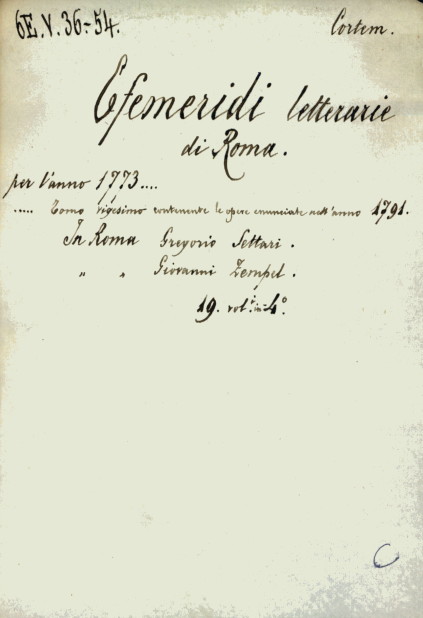 6E.V.36-54. Cortem.
Efemeridi letterarie
di Roma.
per l'anno 1773....
..... Tomo vigesimo contenente le opere enunciate nell'anno 1791.
In Roma Gregorio Settari.
„ „ Giovanni Zempel.
19. vol.i in-4°.
C